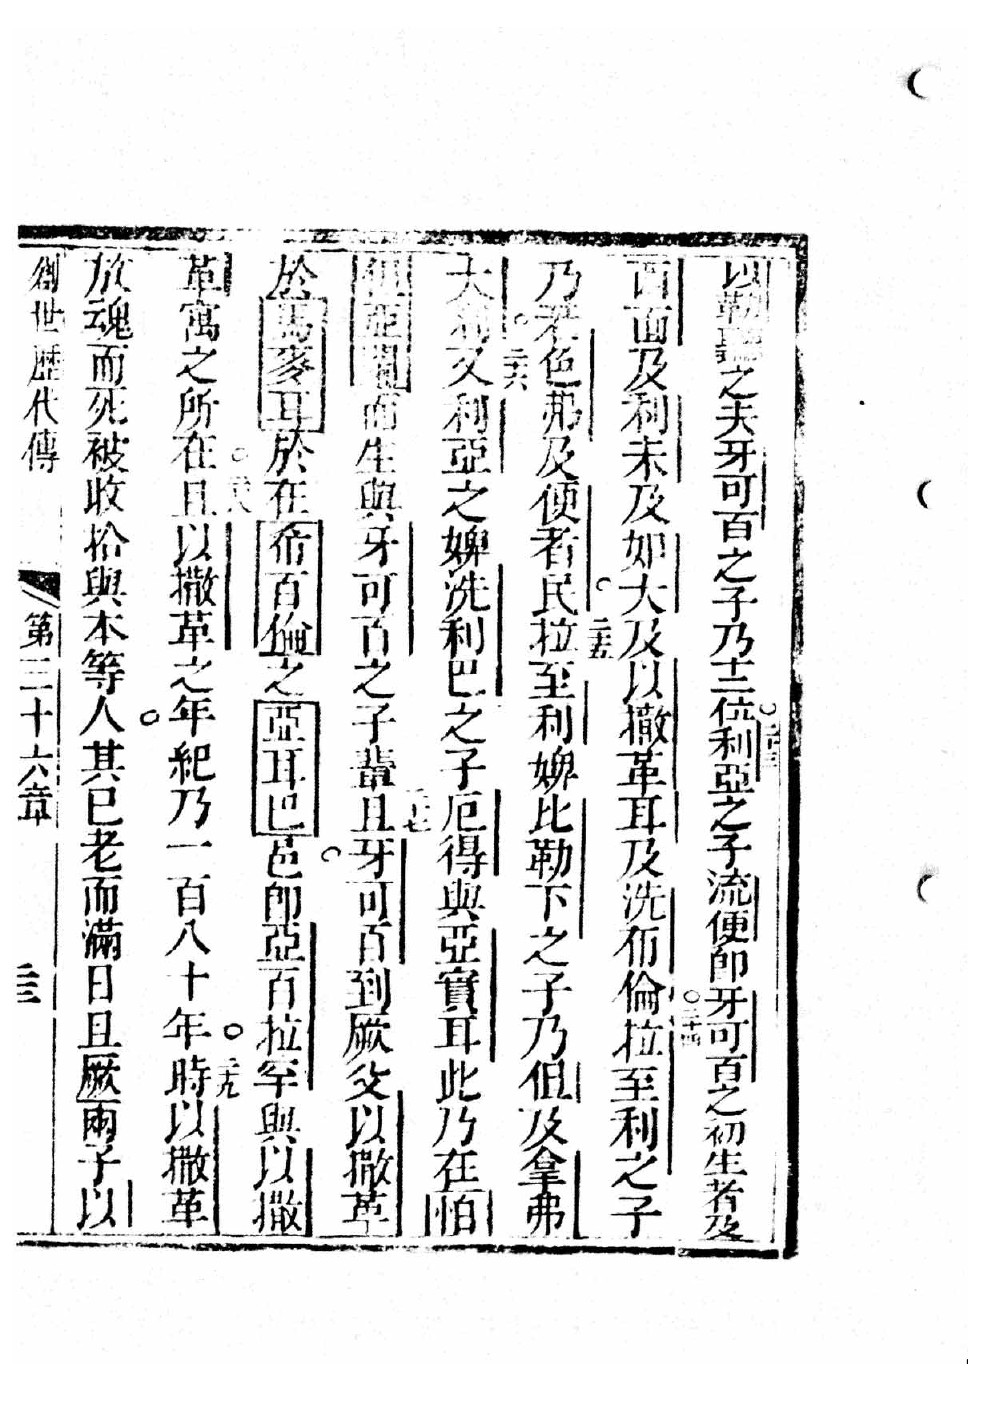 以勒聽之夫牙可百之子乃十二位○二十三利亞之子流便卽牙可百之初生者及
西面及利未及如大及以撒革耳及洗布倫○二十四拉至利之子
乃若色弗及便者民○二十五拉至利婢比勒下之子乃但及拿弗
大利○二十六又利亞之婢洗利巴之子厄得與亞實耳此乃在怕
但亞蘭而生與牙可百之子輩○二十七且牙可百到厥父以撒革
於馬麥耳於在希百倫之亞耳巴邑○卽亞百拉罕與以撒
革寓之所在○二十八且以撒革之年紀乃一百八十年○二十九時以撒革
放魂而死被收拾與本等人○其已老而滿日且厥兩子以
創世歷代傳 第三十六章 三